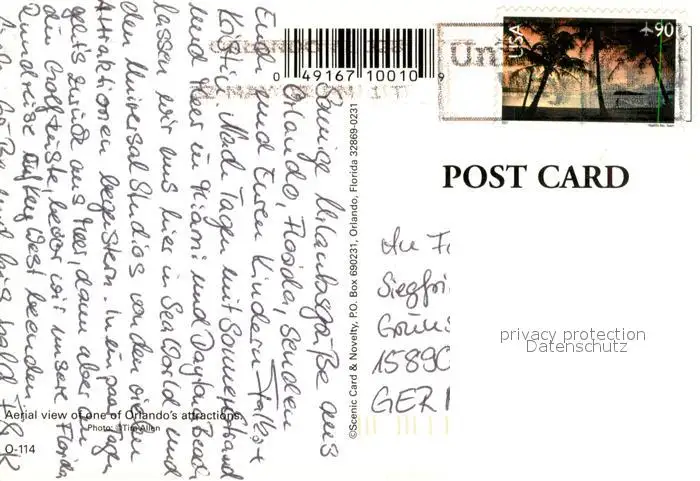 Sonnige Urlaubsgrüße aus
Orlando, Florida, senden
Euch und Euren Kindern
Nach Tagen mit Sonne, Strand
und Meer in Miami und Dayta Beach
lassen wir uns hier in Sea World und
den Universal Studios von den vielen
Attraktionen begeistern. In ein paar Tagen
geht's zurück ans Meer, dann über
die Golfküste, bevor wir unsere Florida
Rundreise in Key West beenden.
bis bald
USA
90
0 49167 10010 9
POST CARD
©Scenic Card & Novelty, P.O. Box 690231, Orlando, Florida 32869-0231
An Fa
Siegfri
15890
GER
privacy protection
Datenschutz
Aerial view of one of Orlando's attractions.
Photo: ©Tim Allen
O-114